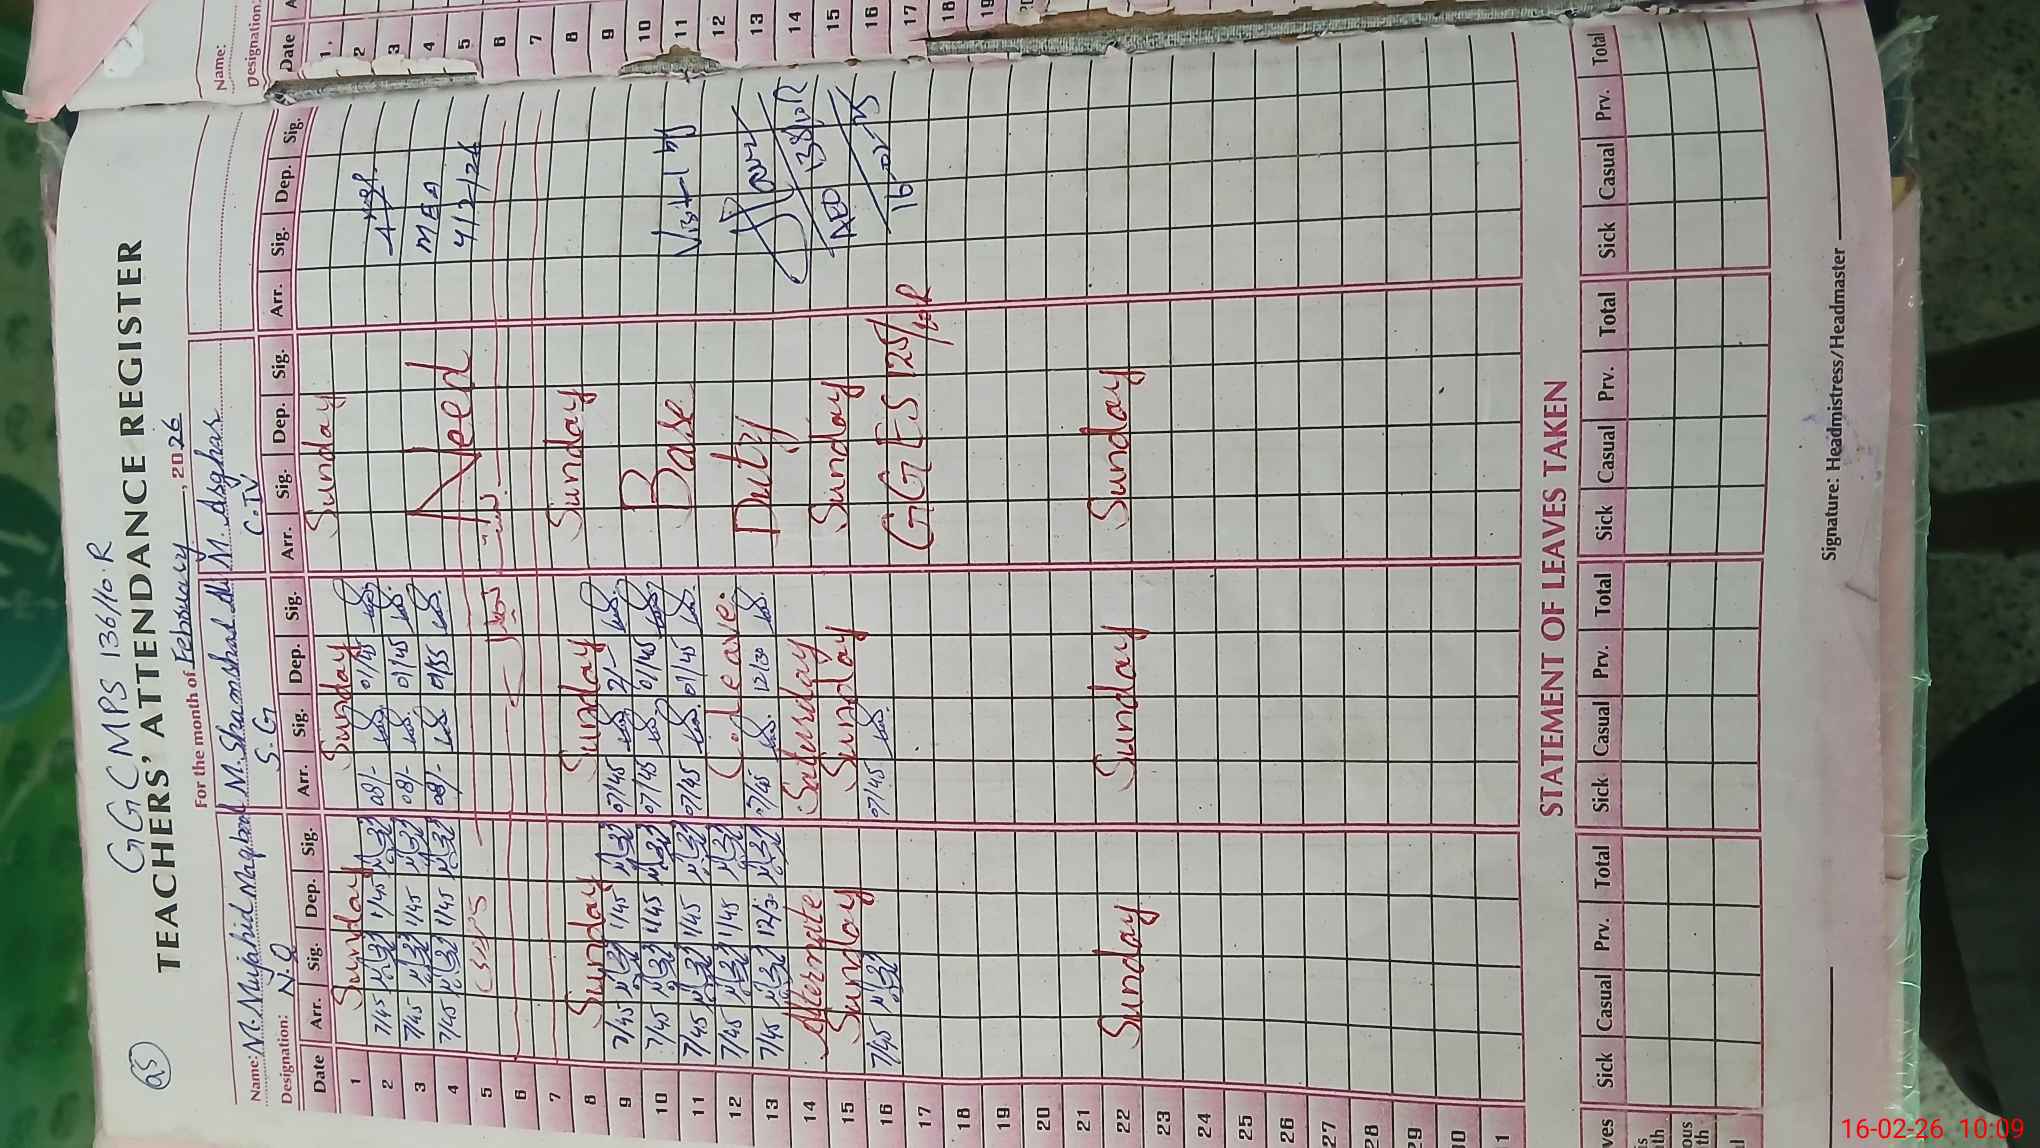 65
GGCMPS 136/10.R
TEACHERS' ATTENDANCE REGISTER
For the month of Febuary, 2026
Name: M. Mujahid Maqbool M. Shamshad Ali M. Asghar
Designation: N.Q S.G C.IV
Date Arr. Sig. Dep. Sig. Arr. Sig. Dep. Sig. Arr. Sig. Dep. Sig. Arr. Sig. Dep. Sig.
1 Sunday Sunday Sunday
2 7/45 1/45 08/- 01/45
3 7/45 1/45 08/- 01/45 Need MEA
4 7/45 1/45 08/- 01/55 4/2/26
5
6
7
8 Sunday Sunday Sunday
9 7/45 1/45 07/45 2/-
10 7/45 1/45 07/45 01/45 Base
11 7/45 1/45 07/45 01/45 Visit by
12 7/45 1/45 C. Leave.
13 7/45 12/30 07/45 12/30 Duty
14 Alternate Saturday
15 Sunday Sunday Sunday AEO
16 7/45 07/45 GGES 125/10R
17
18
19
20
21
22 Sunday Sunday Sunday
23
24
25
26
27
28
29
30
1
STATEMENT OF LEAVES TAKEN
ves Sick Casual Prv. Total Sick Casual Prv. Total Sick Casual Prv. Total Sick Casual Prv. Total
is
ith
ous
th
l
Signature: Headmistress/Headmaster
Name:
Designation:
Date A
1.
2
3
4
5
6
7
8
9
10
11
12
13
14
15
16
17
18
19
16-02-26, 10:09